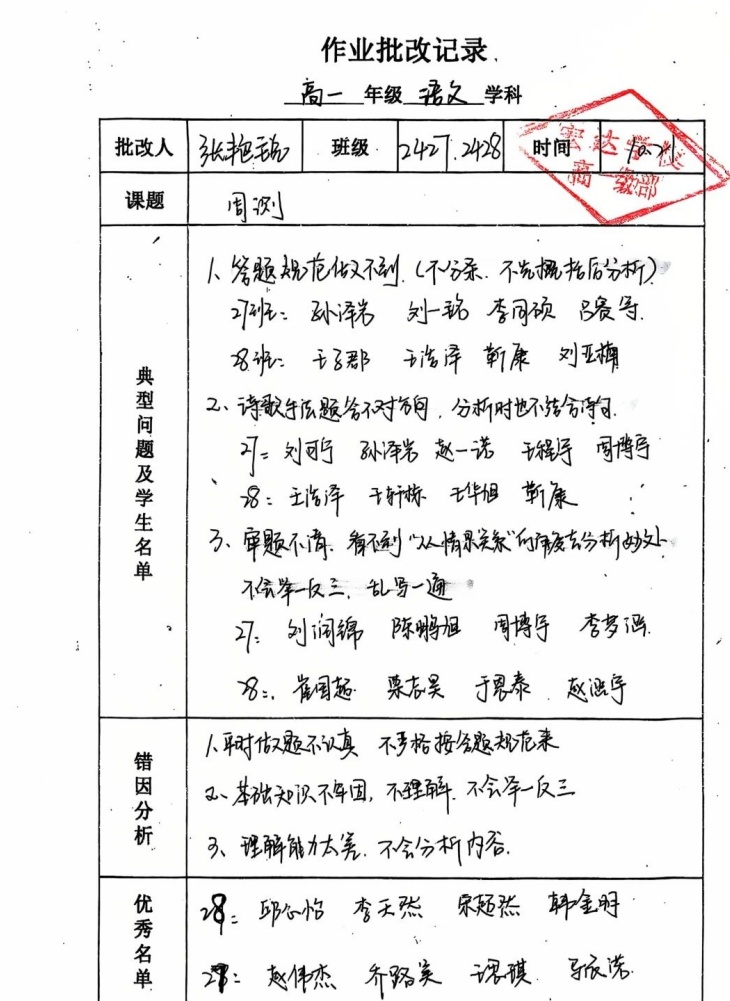 作业批改记录
高一 年级 语文 学科
批改人 张艳 班级 2427.2428 时间 10.21
宏达学校
高一级部
课题 周测
典型问题及学生名单
1、答题规范做不到.(不分条.不先概括后分析)
27班: 孙泽岩 刘一铭 李同硕 吕
28班: 于子郡 王浩泽 靳康 刘亚楠
2、诗歌手法题答不对方向,分析时也不结合诗句.
27: 刘可宁 孙泽岩 赵一诺 王程宇 周博宇
28: 王浩泽 王轩栋 王华旭 靳康
3、审题不清.看不到“从情景关系”的角度去分析妙处
不会举一反三,乱写一通
27: 刘润锦 陈鹏旭 周博宇 李梦涵
28: 崔国超 栗志昊 于恩泰 赵洪宇
错因分析
1.平时做题不认真 不严格按答题规范来
2、基础知识不牢固,不理解.不会举一反三
3、理解能力太差.不会分析内容.
优秀名单
28: 邱心怡 李天然 宋超然 韩金明
27: 赵伟杰 乔路